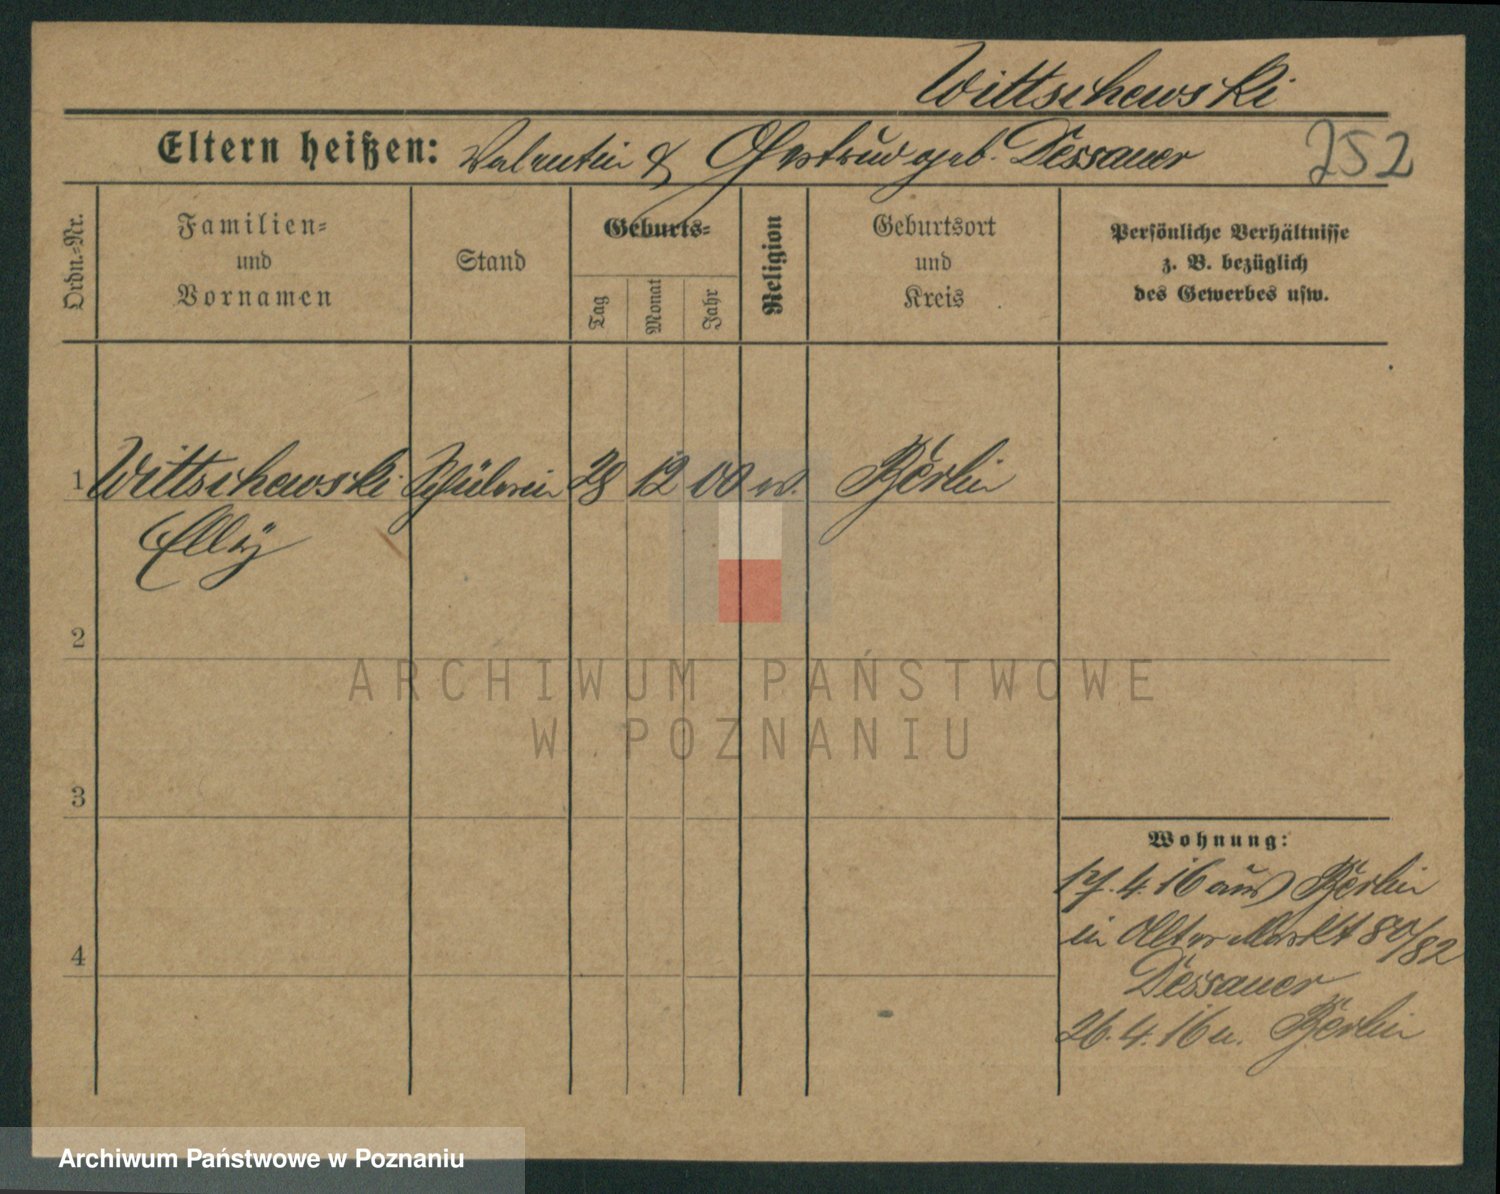 Wittschewski
Eltern heißen: Valentin & Gertrud geb. Dessauer 252
Ordn.-Nr.
Familien-
und
Vornamen
Stand
Geburts-
Tag
Monat
Jahr
Religion
Geburtsort
und
Kreis
Persönliche Verhältnisse
z. B. bezüglich
des Gewerbes usw.
1 Wittschewski Schülerin 28 12 00 Berlin
Elly
2
3
4
Wohnung:
17.4.16 aus Berlin
in Alter Markt 80/82
Dessauer
26.4.16 n. Berlin
ARCHIWUM PAŃSTWOWE
W POZNANIU
Archiwum Państwowe w Poznaniu